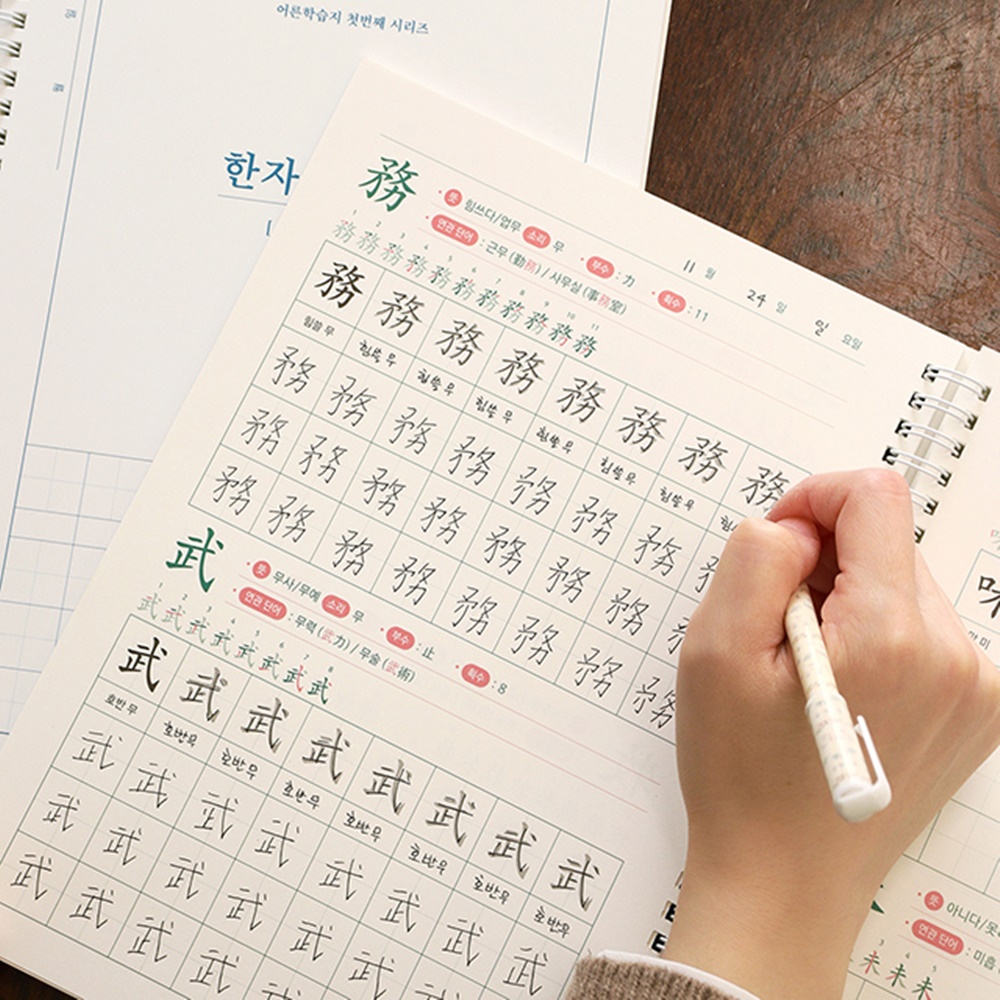 어른학습지 첫번째 시리즈
한자
11 월 24 일 일 요일
務
뜻 힘쓰다/업무 소리 무 부수 : 力 획수 : 11
연관 단어 : 근무 (勤務) / 사무실 (事務室)
1 2 3 4 5 6 7 8 9 10 11
務 務 務 務 務 務 務 務 務 務 務
務 務 務 務 務 務 務 務
힘쓸 무 힘쓸 무 힘쓸 무 힘쓸 무 힘쓸 무 힘쓸 무 힘쓸 무
務 務 務 務 務 務 務 務
務 務 務 務 務 務 務 務
務 務 務 務 務 務 務 務
武
뜻 무사/무예 소리 무 부수 : 止 획수 : 8
연관 단어 : 무력 (武力) / 무술 (武術)
1 2 3 4 5 6 7 8
武 武 武 武 武 武 武 武
武 武 武 武 武 武 武 武
호반 무 호반 무 호반 무 호반 무 호반 무 호반 무 호반 무 호반 무
武 武 武 武 武 武 武 武
武 武 武 武 武 武 武
武 武 武 武 武
味
뜻 아니다/못
연관 단어 : 미흡
3 4 5
未 未 未